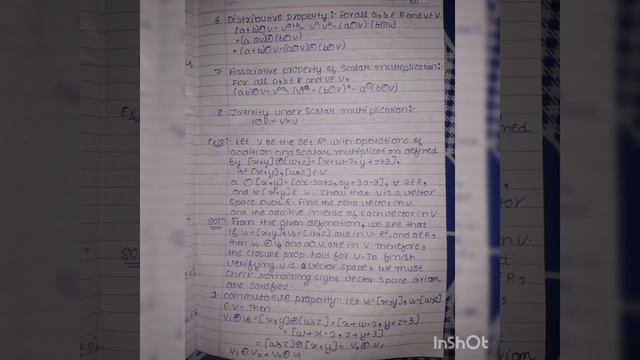 6. Distributive property:- For all a,b ∈ R and v ∈ V.
(a+b)⊙v = v^a+b = v^a · v^b = (a⊙v)·(b⊙v)
= (a⊙v)⊕(b⊙v)
= (a+b)⊙v = (a⊙v)⊕(b⊙v)
7. Associative property of Scalar multiplication:-
For all a,b ∈ R and v ∈ V,
(ab)⊙v = v^ab = (v^b)^a = (b⊙v)^a = a⊙(b⊙v)
8. Identity under scalar multiplication:-
1⊙v = v¹ = v
Let V be the set R² with operations of
addition and scalar multiplication defined
by [x,y]⊕[w,z] = [x+w-2, y+z+3],
∀ [x,y], [w,z] ∈ V
a⊙[x,y] = [ax-2a+2, ay+3a-3], ∀ a ∈ R,
and ∀ [x,y] ∈ V. Show that V is a vector
space over R. Find the zero vector in V
and the additive inverse of each vector in V.
Solⁿ:- From the given defination, we see that
if V₁ = [x,y], V₂ = [w,z] are in V = R² and a ∈ R,
then V₁ ⊕ V₂ and a⊙V₁ are in V. Therefore,
the closure prop. hold for V. To finish
verifying V is a vector space, we must
check remaining eight vector space axiom
are satisfied.
1. commutative property:- let V₁ = [x,y], V₂ = [w,z]
∈ V. Then
V₁⊕V₂ = [x,y]⊕[w,z] = [x+w-2, y+z+3]
= [w+x-2, z+y+3]
= [w,z]⊕[x,y] = V₂⊕V₁
V₁⊕V₂ = V₂⊕V₁
InShOt